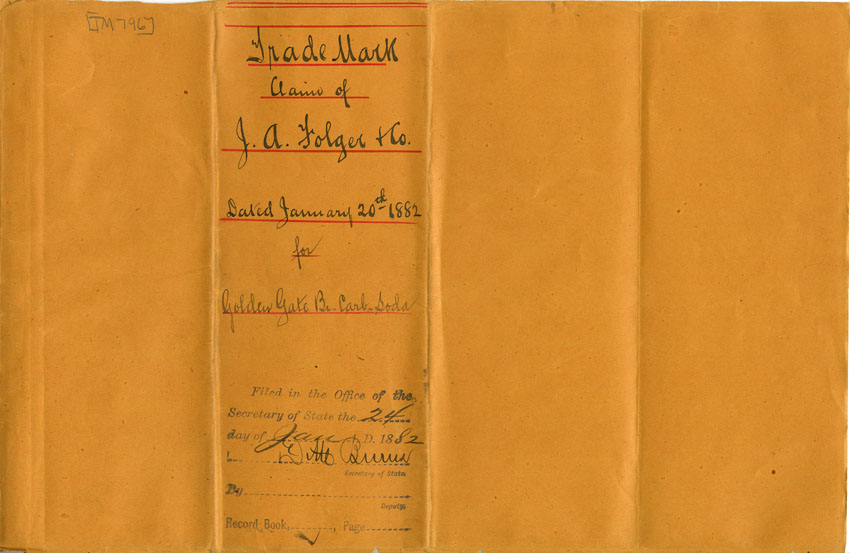 [TM 796]
Trade Mark
Claim of
J. A. Folger & Co.
Dated January 20th 1882
for
Golden Gate Bi-Carb-Soda
Filed in the Office of the
Secretary of State the 24
day of Jan A.D. 1882
Burns
Secretary of State
By
Deputy.
Record Book, , Page